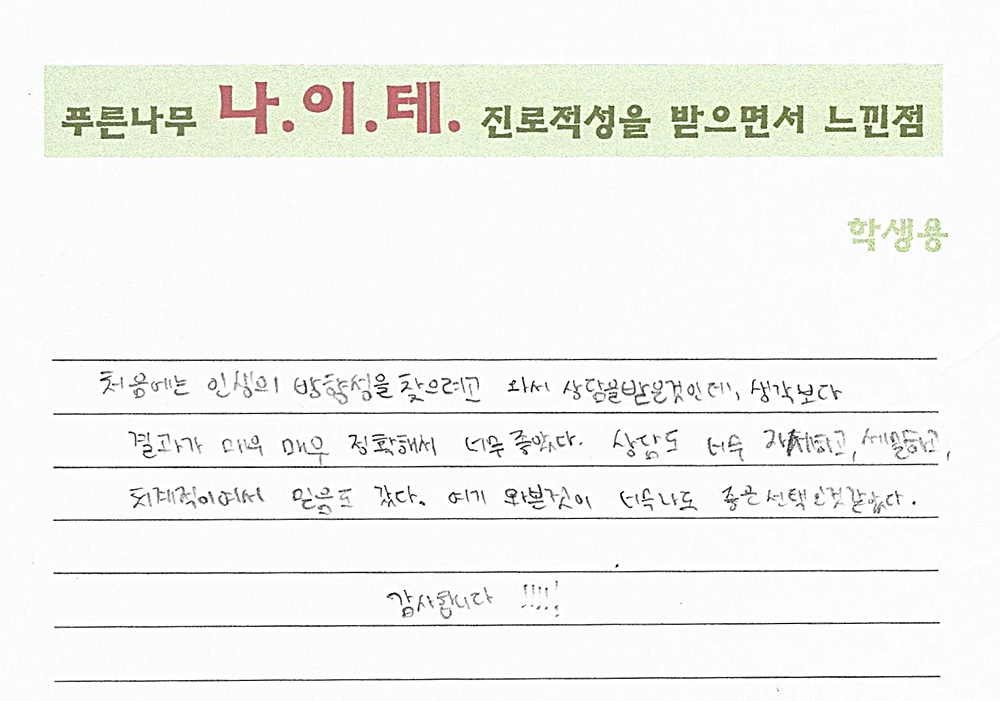 푸른나무 나.이.테. 진로적성을 받으면서 느낀점
학생용
처음에는 인생의 방향성을 찾으려고 와서 상담을받은것인데, 생각보다
결과가 매우 매우 정확해서 너무좋았다. 상담도 너무 자세하고, 세밀하고,
체계적이여서 믿음도 갔다. 여기 와본것이 너무나도 좋은선택인것같았다.
감사합니다 !!!!!